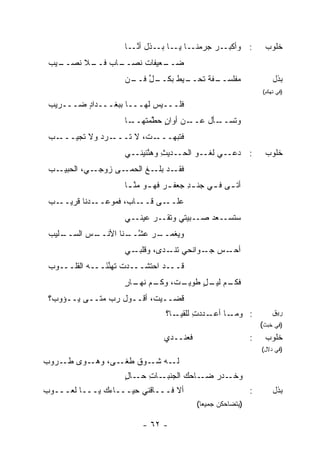 خلوب : وأكبــر جرمنــا يــا بــذل أنّــا
ضــعيفات نصــاب فــلا نصــيب
بذل
مفلســفة تحــيط بكــلّ فــن
(في تهكم)
فلــيس لهــا ببغــدادٍ ضــريب
وتســأل عــن أوانٍ حطّمتهــا
فتبهــت، لا تــرد ولا تجيــب
خلوب : دعــي لغــو الحــديث وهنّئينــي
فقــد بلــغ الحمــى زوجــي، الحبيــب
أتــى فــي جنــدِ جعفــر فهــو منّــا
علــى قــاب، فموعــدنا قريــب
ستســعد صــبيتي وتقــر عينــي
ويغمــر عشّــنا الأنــس الســليب
أحــس جــوانحي تنــدى، وقلبــي
قــد احتشــدت تهنّئــه القلــوب
فكــم ليــلٍ طويــت، وكــم نهــار
قضــيت، أقــول رب متــى يــؤوب؟
ربق : ومــا أعــددتِ للقيــا؟
(في خبث)
خلوب : فعنــدي
(في دلال)
لــه شــوق طغــى، وهــوى طــروب
وخــدر ضــاحك الجنبــات حــالٍ
بذل : ألا فــاقني حيــاءك يــا لعــوب
(يتضاحكن جميعا)
- ٦٢ -